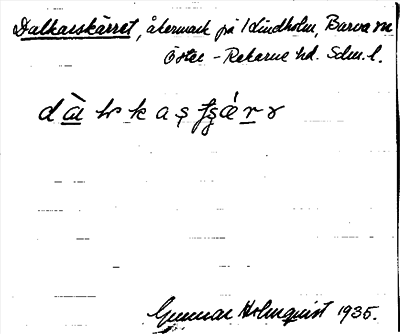 Dalkarskärret, åkermark på 1 Lindholm, Barva sn
Öster-Rekarne hd. Sdm. l.
Gunnar Holmquist 1935.